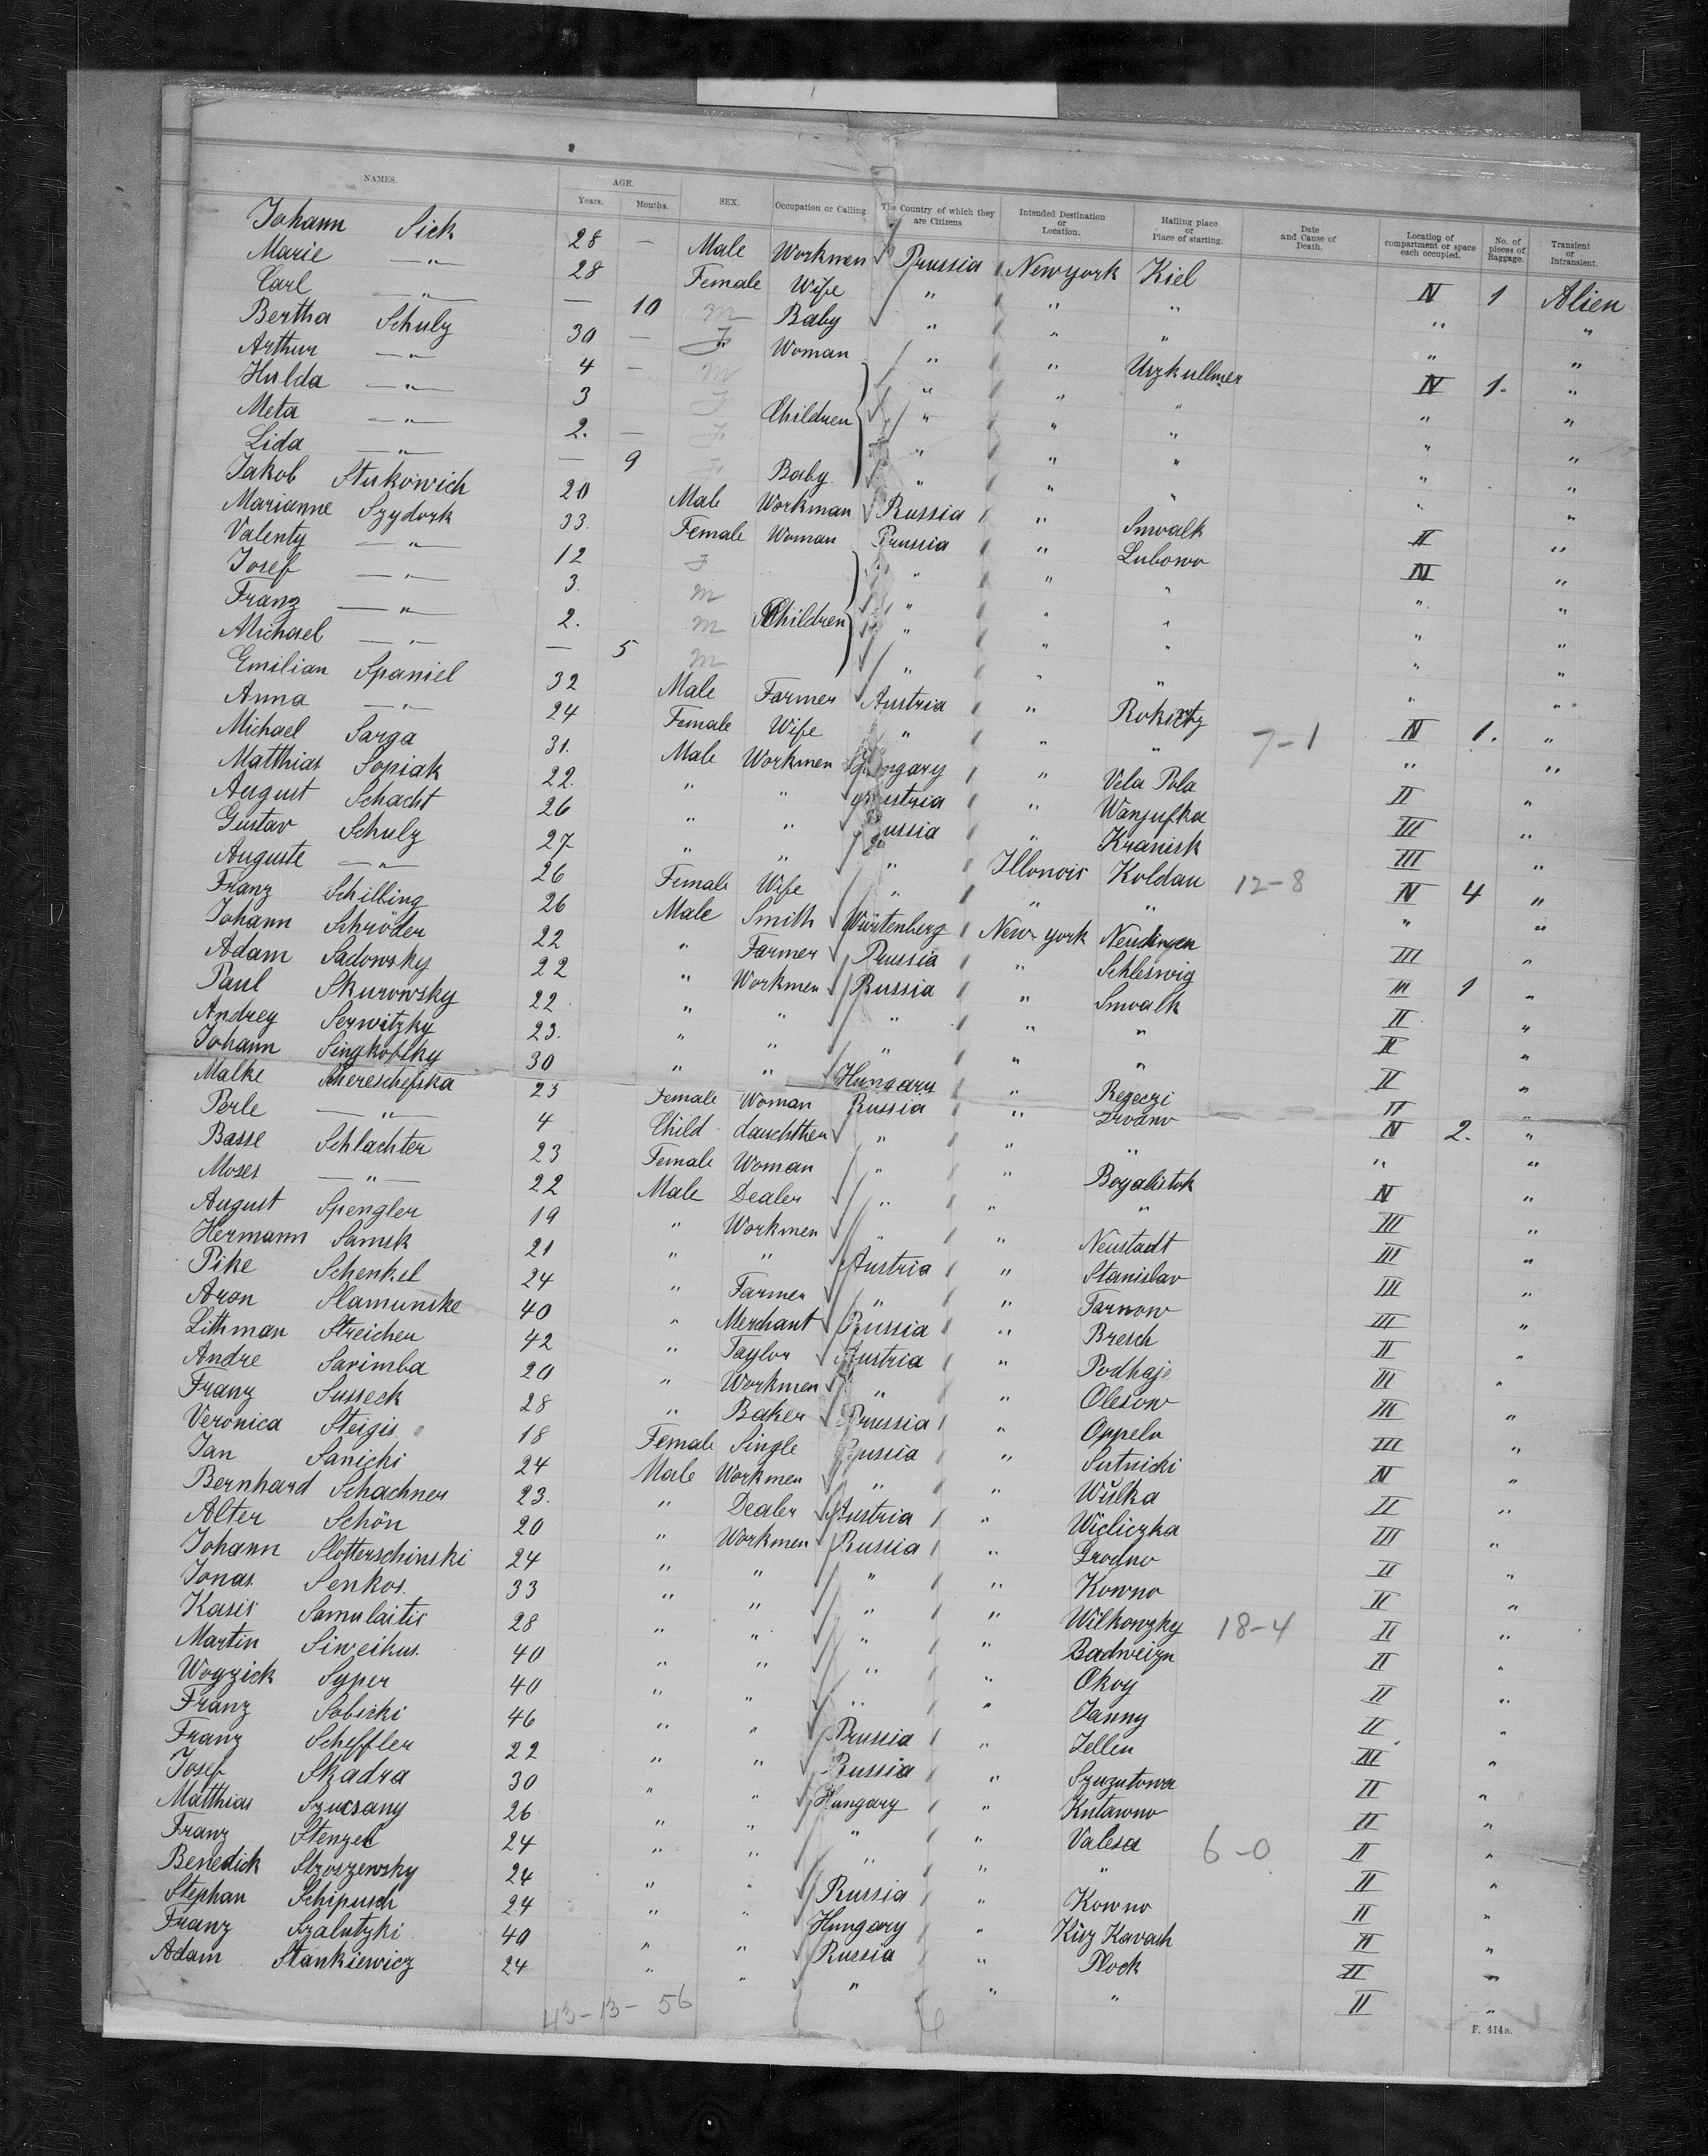 NAMES. AGE. Years. Months. SEX. Occupation or Calling. The Country of which they are Citizens Intended Destination or Location. Hailing place or Place of starting. Date and Cause of Death. Location of compartment or space each occupied. No. of pieces of Baggage. Transient or Intransient.
Johann Sick 28 — Male Workmen Prussia New york Kiel IV 1 Alien
Marie — " — 28 Female Wife " " " " "
Carl — " — — 10 m Baby " " " " "
Bertha Schulz 30 — F Woman " " Uszkullmer IV 1. "
Arthur — " — 4 — m " " " " "
Hulda — " — 3 F Children " " " " "
Meta — " — 2. — F " " " " "
Lida — " — — 9 F Baby " " " " "
Jakob Stukowich 20 Male Workman Russia " Suwalk II "
Marianne Szydork 33. Female Woman Prussia " Lubowo IV "
Valenty — " — 12 F " " " " "
Josef — " — 3. m " " " " "
Franz — " — 2. m Children " " " " "
Michael — " — — 5 m " " " " "
Emilian Spaniel 32 Male Farmer Austria " 7-1 IV 1. "
Anna — " — 24 Female Wife " " " " "
Michael Sarga 31. Male Workmen Hungary " Vela Pola II "
Matthias Sopiak 22. " " Austria " Wanjufka III "
August Schacht 26 " " Russia " Kranisk III "
Gustav Schulz 27 " " " Illonois Koldau 12-8 IV 4 "
Auguste — " — 26 Female Wife " " " " "
Franz Schilling 26 Male Smith Würtenberg New-york Neudingen III "
Johann Schröder 22 " Farmer Prussia " Schleswig III 1 "
Adam Sadowsky 22 " Workmen Russia " Suwalk II "
Paul Skurowsky 22. " " " " " II "
Andrey Serwitzky 23. " " " " " II "
Johann Singkofsky 30 " " Hungary " Regeczi II "
Malke Schereschefska 23 Female Woman Russia " IV 2. "
Perle — " — 4 Child dauchther " " " " "
Basse Schlachter 23 Female Woman " " Bogalistok IV "
Moses — " — 22 Male Dealer " " " III "
August Spengler 19 " Workmen " " Neustadt III "
Hermann Samsk 21 " " Austria " Stanislav III "
Pike Schenkel 24 " Farmer " " Tarnow III "
Aron Slamunske 40 " Merchant Russia " Bresch II "
Lithman Streicher 42 " Taylor Austria " Podhaje III "
Andre Sarimba 20 " Workmen " " Olesow III "
Franz Susseck 28 " Baker Prussia " Oppeln III "
Veronica Steigis 18 Female Single Russia " Sutnicki IV "
Jan Sanicki 24 Male Workmen " " Wulka II "
Bernhard Schachner 23. " Dealer Austria " Wieliczka III "
Alter Schön 20 " Workmen Russia " Grodno II "
Johann Slotterschinski 24 " " " " Kowno II "
Jonas Senkos 33 " " " " Wilkowzky 18-4 II "
Kasis Samulaitis 28 " " " " Badweizn II "
Martin Siweikus. 40 " " " " Okoy II "
Woyzick Syper 40 " " " " Janny II "
Franz Sobicki 46 " " Prussia " Jellen III "
Franz Scheffler 22 " " Russia " Szuzutowa II "
Josef Skadra 30 " " Hungary " Kutawno II "
Matthias Szucsany 26 " " " " Valesa 6-0 II "
Franz Stenzel 24 " " " " " II "
Benedick Stroszewsky 24 " " Russia " Kowno II "
Stephan Schipusch 24 " " Hungary " Kisz Kavash II "
Franz Szalutzki 40 " " Russia " Plock II "
Adam Stankiewicz 24 " " " " " II "
43-13-56
F. 414a.